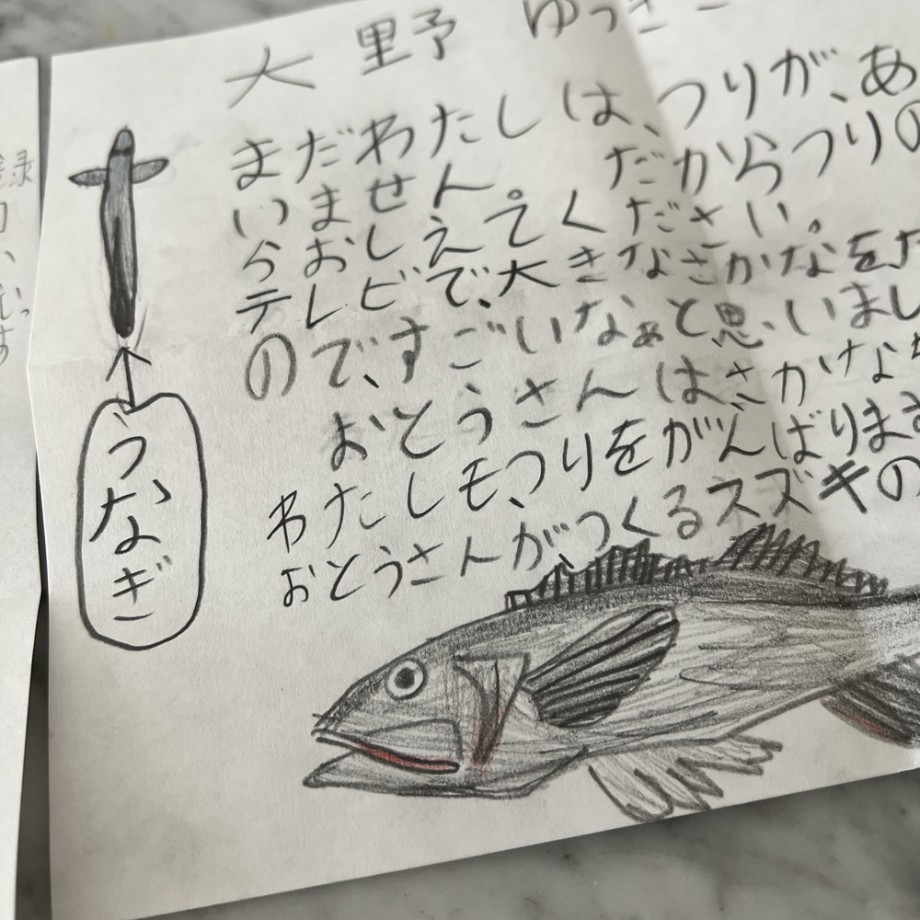 大 野 ゆっき
まだわたしは、つりが、あ
いません。 だからつりの
らおしえてください。
テレビで、大きなさかなを
ので、すごいなぁと思いまし
おとうさんはさかなな
わたしもつりをがんばります
おとうさんが、つくるスズキの
うなぎ